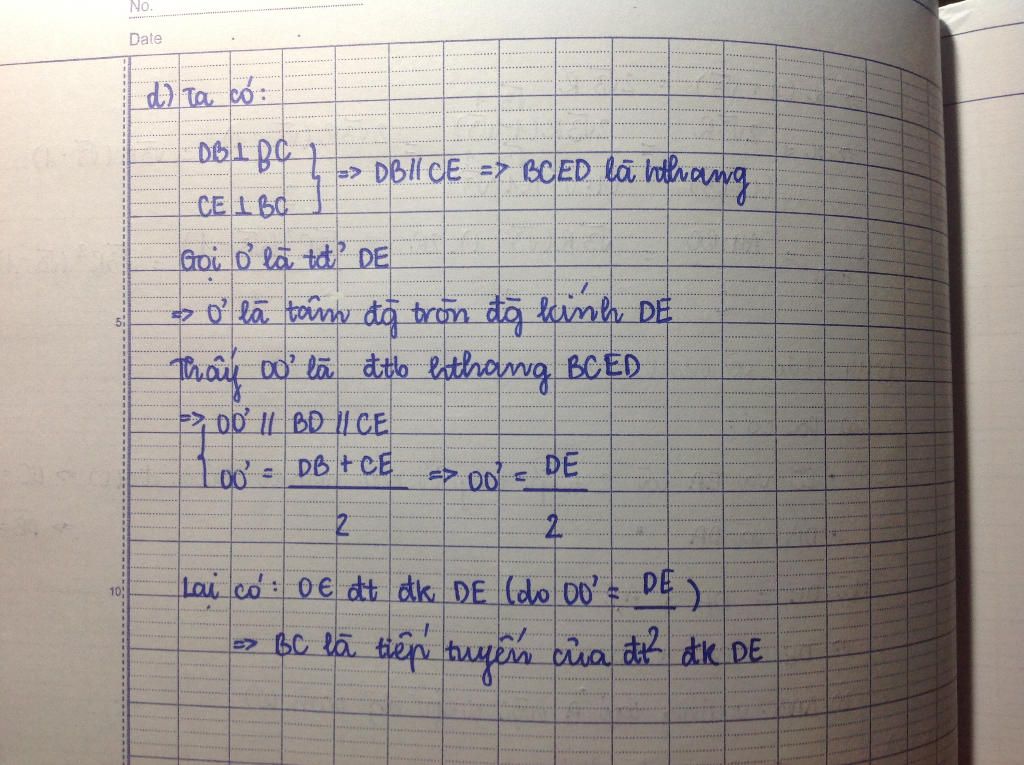 No.
Date
d) Ta có:
DB ⊥ BC
CE ⊥ BC
=> DB // CE => BCED là hthang
Gọi O' là tđ' DE
=> O' là tâm đg̀ tròn đg̀ kính DE
Thấy OO' là đtb hthang BCED
=> OO' // BD // CE
OO' = DB + CE / 2 => OO' = DE / 2
5
Lại có: O ∈ đt đk DE (do OO' = DE)
10
=> BC là tiếp tuyến của đt² đk DE